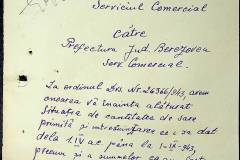 Serviciul Comercial
Către
Prefectura Jud. Berezovca
Serv. Comercial.
La ordinul Dvs. Nr. 26366/943, avem
onoarea vă înainta alăturat
Situația de cantitatea de sare
primită și întrebuințarea ce i s'a dat
dela 1.IV a.c până la 1-IX-943,
precum și a sumelor